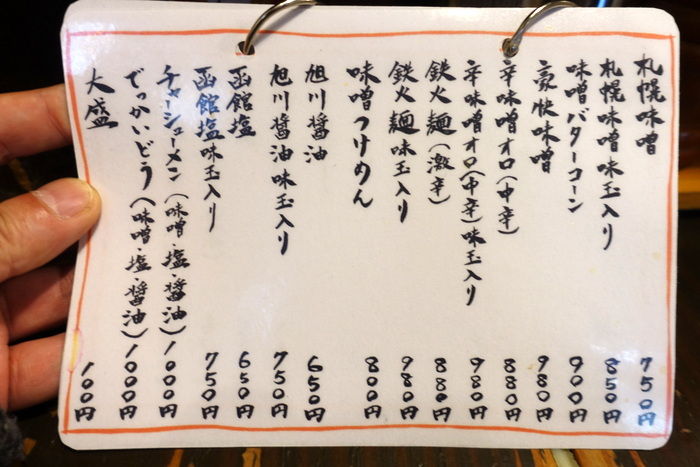 札幌味噌 750円
札幌味噌味玉入り 850円
味噌バターコーン 900円
豪快味噌 980円
辛味噌オロ(中辛) 880円
辛味噌オロ(中辛)味玉入り 980円
鉄火麺(激辛) 880円
鉄火麺味玉入り 980円
味噌つけめん 800円
旭川醤油 650円
旭川醤油味玉入り 750円
函館塩 650円
函館塩味玉入り 750円
チャーシューメン(味噌・塩・醤油) 1000円
でっかいどう(味噌・塩・醤油) 1000円
大盛 100円